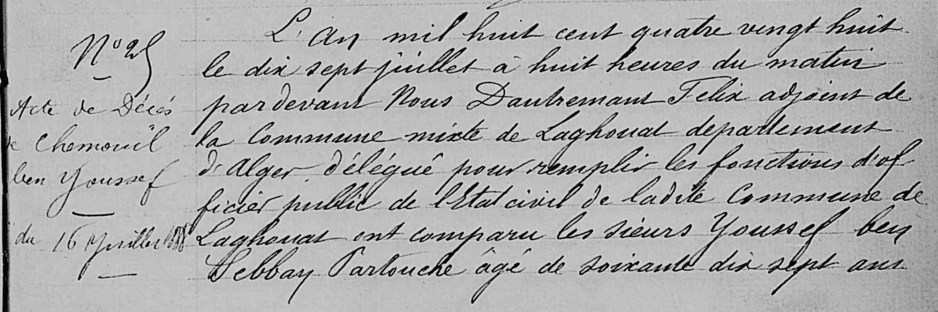 N° 25
Acte de Décès
de Chemouïl
ben Youssef
du 16 Juillet 1888
L'An mil huit cent quatre vingt huit
le dix sept juillet à huit heures du matin
pardevant Nous Dautremant Felix adjoint de
la Commune mixte de Laghouat departement
d'Alger, délégué pour remplir les fonctions d'of
ficier public de l'Etat civil de ladite Commune de
Laghouat ont comparu les sieurs Youssef ben
Sebbay Partouche âgé de soixante dix sept ans